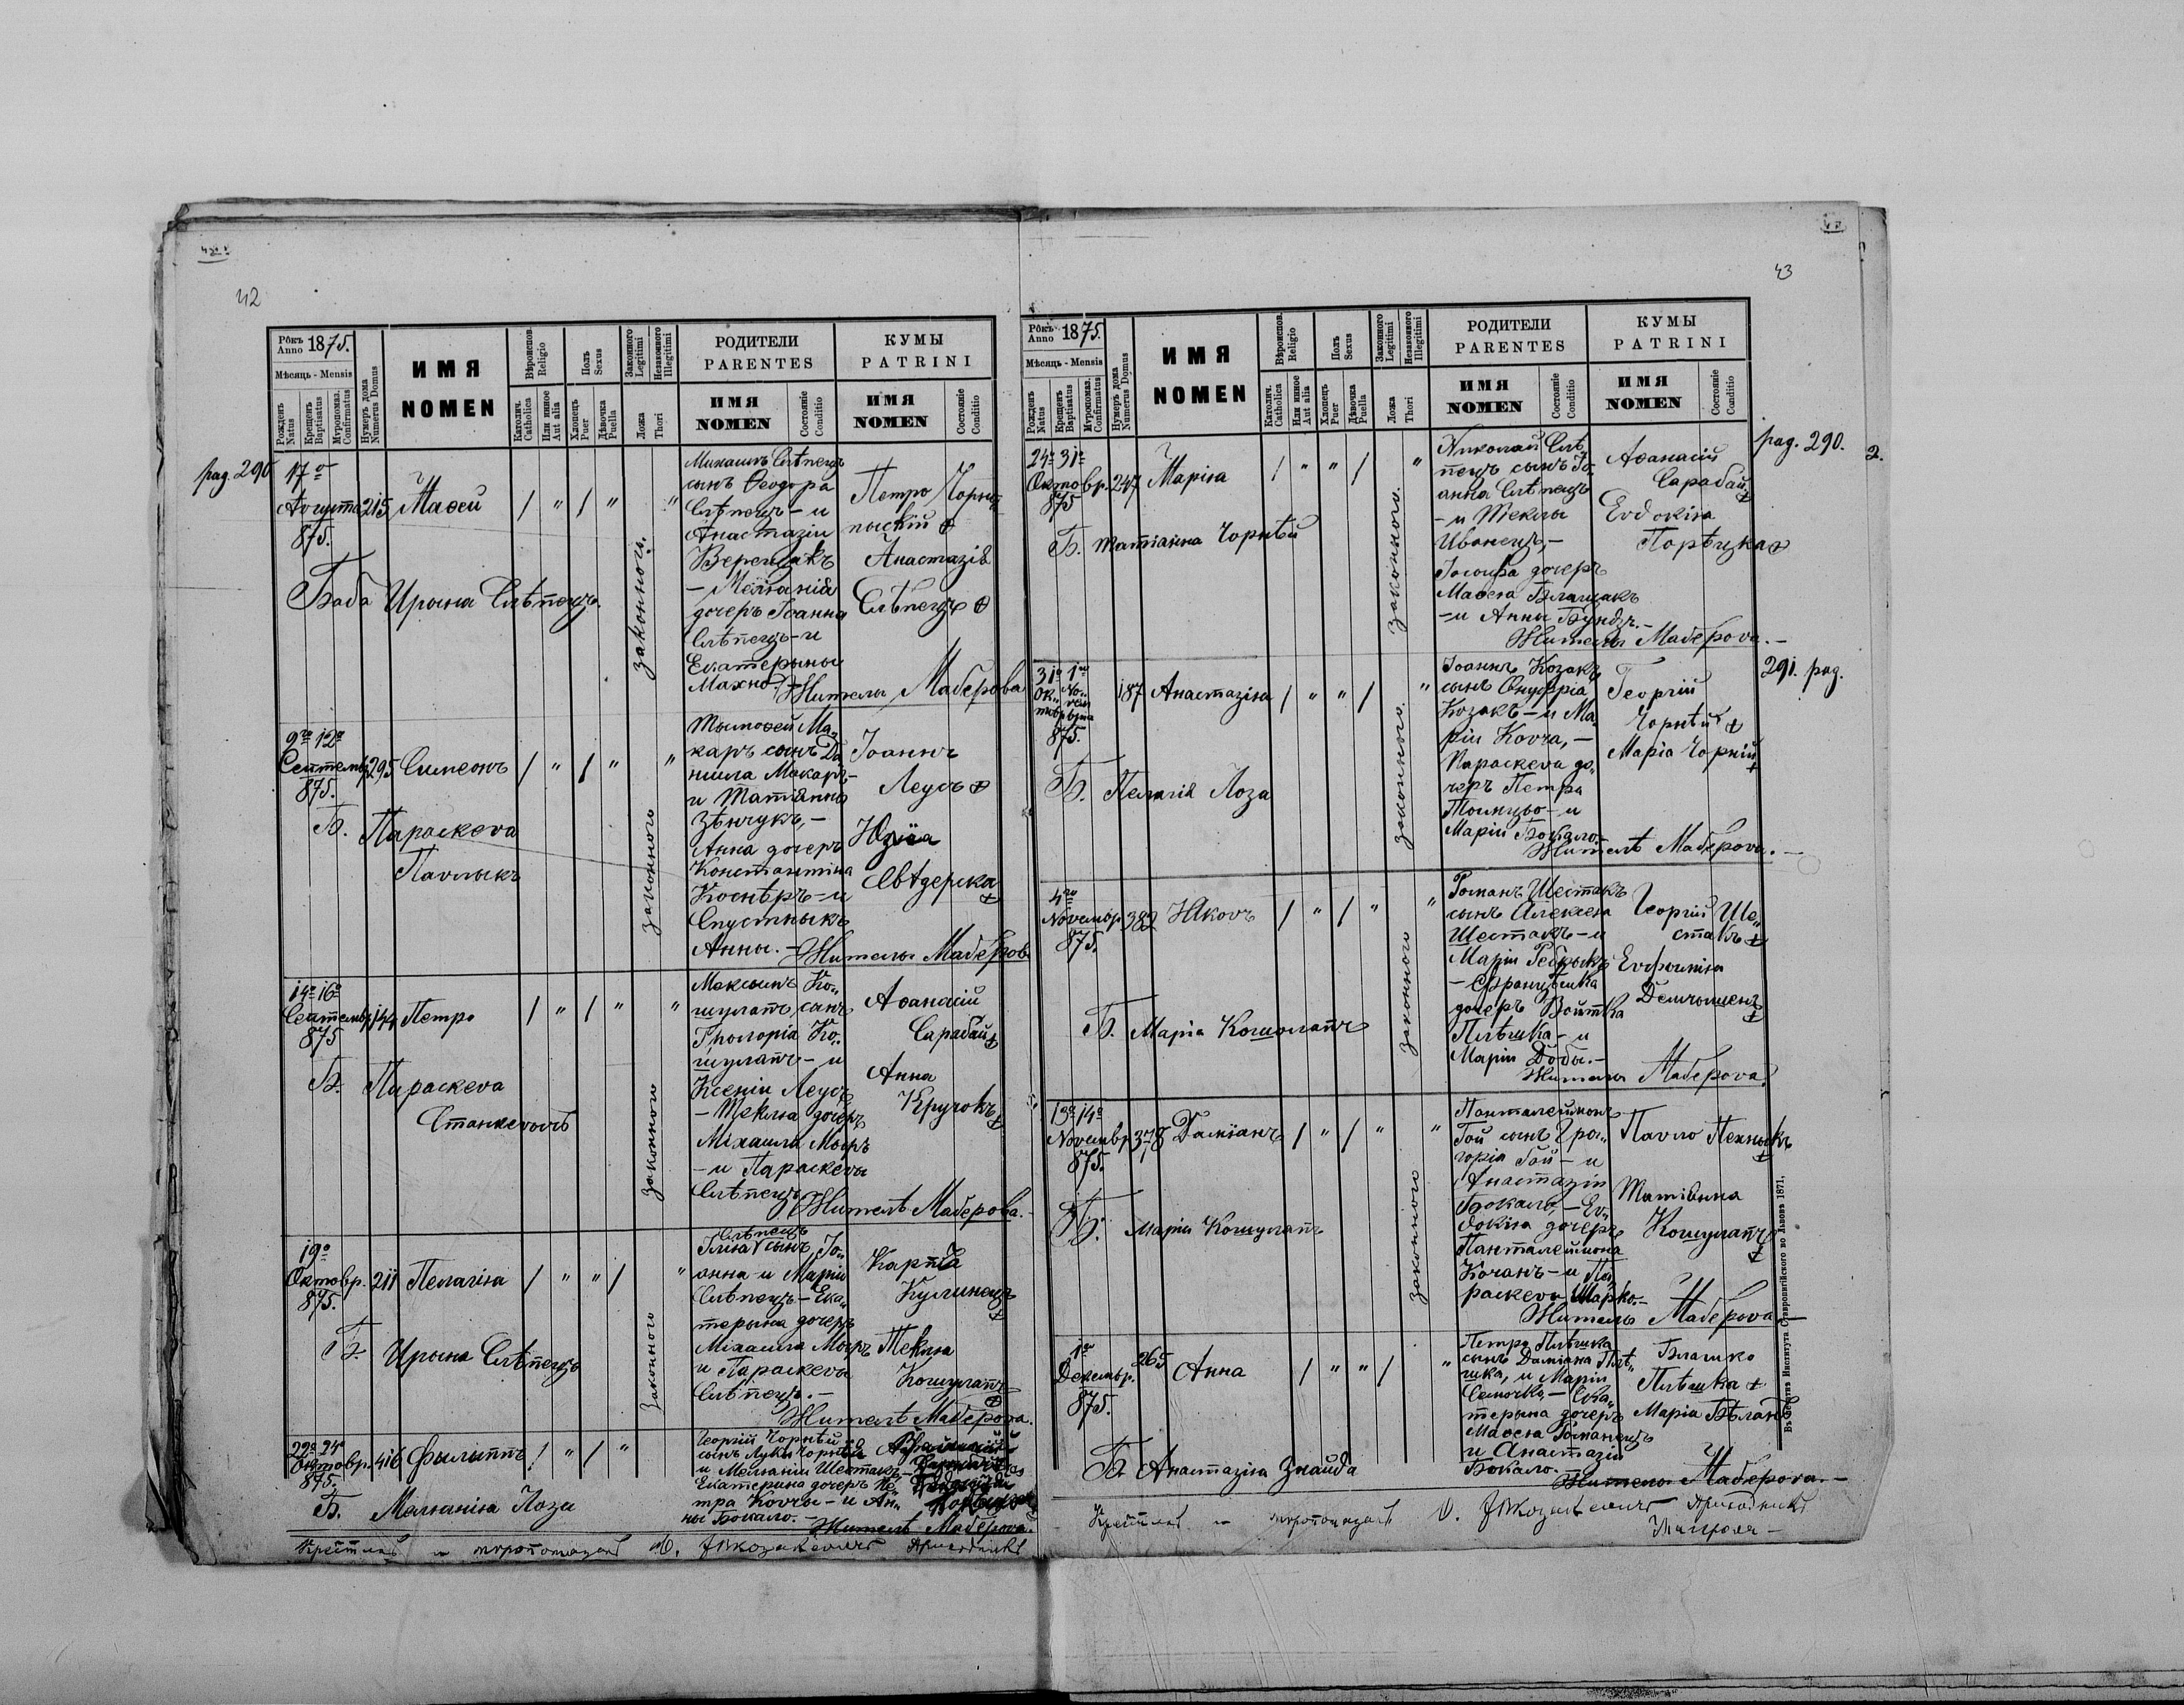 42
Рôкъ Anno 1875.
Мѣсяць - Mensis
Рожденъ Natus
Крещенъ Baptisatus
Мѵропомаз. Confirmatus
Нумеръ дома Numerus Domus
ИМЯ
NOMEN
Вѣроиспов. Religio
Католич. Catholica
Или иное Aut alia
Полъ Sexus
Хлопецъ Puer
Дѣвочка Puella
Законного Legitimi
Незаконного Illegitimi
Ложа Thori
РОДИТЕЛИ
PARENTES
ИМЯ
NOMEN
Состоянiе Conditio
КУМЫ
PATRINI
ИМЯ
NOMEN
Состоянiе Conditio
pag. 290
17º
Августа 215 Маѳей / " / " "
875.
Баба Ирына Слѣпецъ.
законного.
Михаилъ Слѣпецъ
сынъ Ѳеодора
Слѣпецъ - и
Анастазіи
Верещакъ
- Меланія
дочеръ Іоанна
Слѣпецъ - и
Екатерыны
Махно. -
Жители Маґерова
Петро Чорно
пыскій
Анастазія
Слѣпецъ
9го 12º
Септемвр. 295 Симеонъ / " / " "
875.
Б. Параскева
Павлыкъ
законного
Тымоѳей Ма„
каръ сынъ Да
ниила Макаръ -
и Татіянны
Зѣнчукъ, -
Анна дочеръ
Константина
Коснѣръ - и
Спустныкъ
Анны. -
Жители Маґеров.
Іоаннъ
Леусъ
Юзіа
Свѣдерска
14º 16º
Септемвр. 144 Петро / " / " "
875
Б. Параскева
Станкевичъ
законного
Максымъ Ко„
шулапъ, сынъ
Григорія Ко„
шулапъ - и
Ксеніи Леусъ
- Текля дочеръ
Михаила Моръ
- и Параскевы
Слѣпецъ
Жителѣ Маґерова. -
Аѳанасій
Сарабай
Анна
Кручокъ
19º
Октовр. 211 Пелагія / " " / "
875.
Б. Ирына Слѣпецъ
законного
Слѣпецъ
Ілія сынъ, Іо„
анна и Маріи
Слѣпецъ - Ека„
терына дочеръ
Михаила Моръ
и Параскевы
Слѣпецъ. -
Жителѣ Маґерова.
Карпъ
Кулинецъ
Текля
Кошулапъ
22º 24º
Октовр. 416 Филиппъ / " / "
875.
Б. Меланія Лоза
Георгій Чорнѣй
сынъ Луки Чорнѣй
и Меланіи Шестакъ -
Екатерина дочеръ Пе„
тра Ковча - и Ан„
ны Бокало. -
Жителѣ Маґерова.
43
Рôкъ Anno 1875.
Мѣсяць - Mensis
Рожденъ Natus
Крещенъ Baptisatus
Мѵропомаз. Confirmatus
Нумеръ дома Numerus Domus
ИМЯ
NOMEN
Вѣроиспов. Religio
Католич. Catholica
Или иное Aut alia
Полъ Sexus
Хлопецъ Puer
Дѣвочка Puella
Законного Legitimi
Незаконного Illegitimi
Ложа Thori
РОДИТЕЛИ
PARENTES
ИМЯ
NOMEN
Состоянiе Conditio
КУМЫ
PATRINI
ИМЯ
NOMEN
Состоянiе Conditio
pag. 290. 2.
24º 31º
Октовр. 247 Марія / " " / "
875
Б. Татіанна Чорнѣй
законного.
Николай Слѣ„
пецъ сынъ Іо„
анна Слѣпецъ
- и Теклы
Иванецъ, -
Іосифа дочеръ
Маѳея Блащакъ
- и Анны Бундзъ. -
Жители Маґерова. -
Аѳанасій
Сарабай
Евдокія
Порѣцка
291. pag.
31º 1го
Ок„ Но„
товр вемврія
875.
187 Анастазія / " " / "
Б. Пелагія Лоза
законного.
Іоаннъ Козакъ
сынъ Онуфрія
Козакъ - и Ма„
ріи Ковча, -
Параскева до„
черъ Петра
и
Маріи Бокало. -
Жителѣ Маґерова. -
Георгій
Чорнѣй
Марія Чорній
4го
Новемвр. 382 Яковъ / " / " "
875.
Б. Марія Кошолапъ
законного
Романъ Шестакъ
сынъ Алексея
Шестакъ - и
Маріи Ребрыкъ
- Францѣшка
дочеръ Войтка
Плѣшка - и
Маріи Добы. -
Жители Маґерова.
Георгій Ше„
стакъ
Евфимія
Демчишенъ
13º 14º
Новемвр. 378 Даміанъ / " / " "
875.
Б. Марія Кошулапъ
законного
Панталеймонъ
Гой сынъ Гри„
горія Гой - и
Анастазіи
Бокало, - Ев„
докія дочеръ
Панталеймона
Кочанъ - и Па„
раскевы Шарко. -
Жители Маґерова
Павло Пехныкъ
Татіанна
Кошулапъ
1го
Декемвр. 265 Анна / " " / "
875.
Б. Анастазія Знайда
Петро Плѣшка
сынъ Даміана Плѣ„
шка, и Маріи
Семочко, - Ека„
терына дочеръ
Маѳея Романецъ
и Анастазіи
Бокало. -
Жители Маґерова. -
Блашко
Плѣшка
Марія Бѣлан
Въ Институа Ставропигійского во Львовѣ 1871.